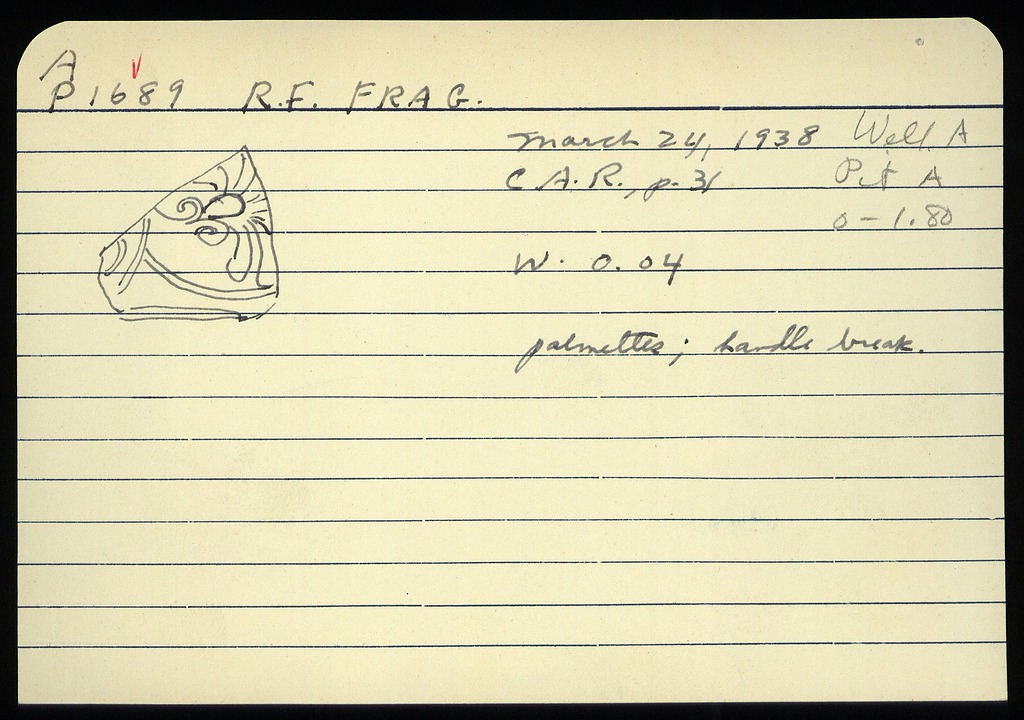 A
P 1689 R.F. FRAG.
March 24, 1938 Well A
C.A.R., p. 31 Pit A
0-1.80
W. 0.04
palmettes; handle break.